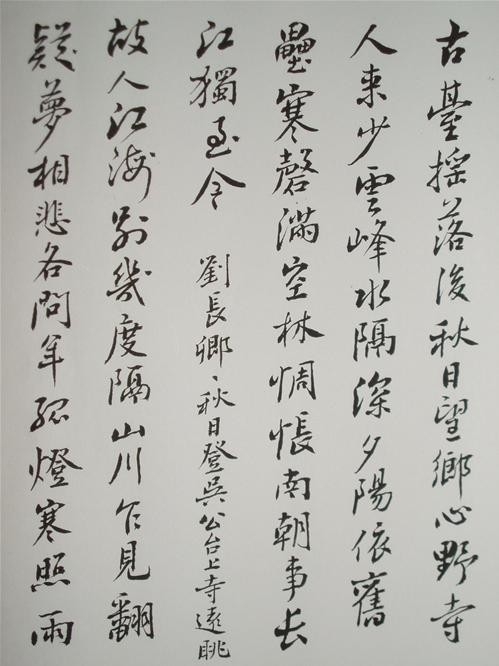 古臺摇落後秋日望鄉心野寺
人来少雲峰水隔深夕陽依舊
壘寒磬滿空林惆悵南朝事长
江獨至今 劉長卿、秋日登吳公台上寺遠眺
故人江海别幾度隔山川乍見翻
疑夢相悲各問年孤燈寒照雨